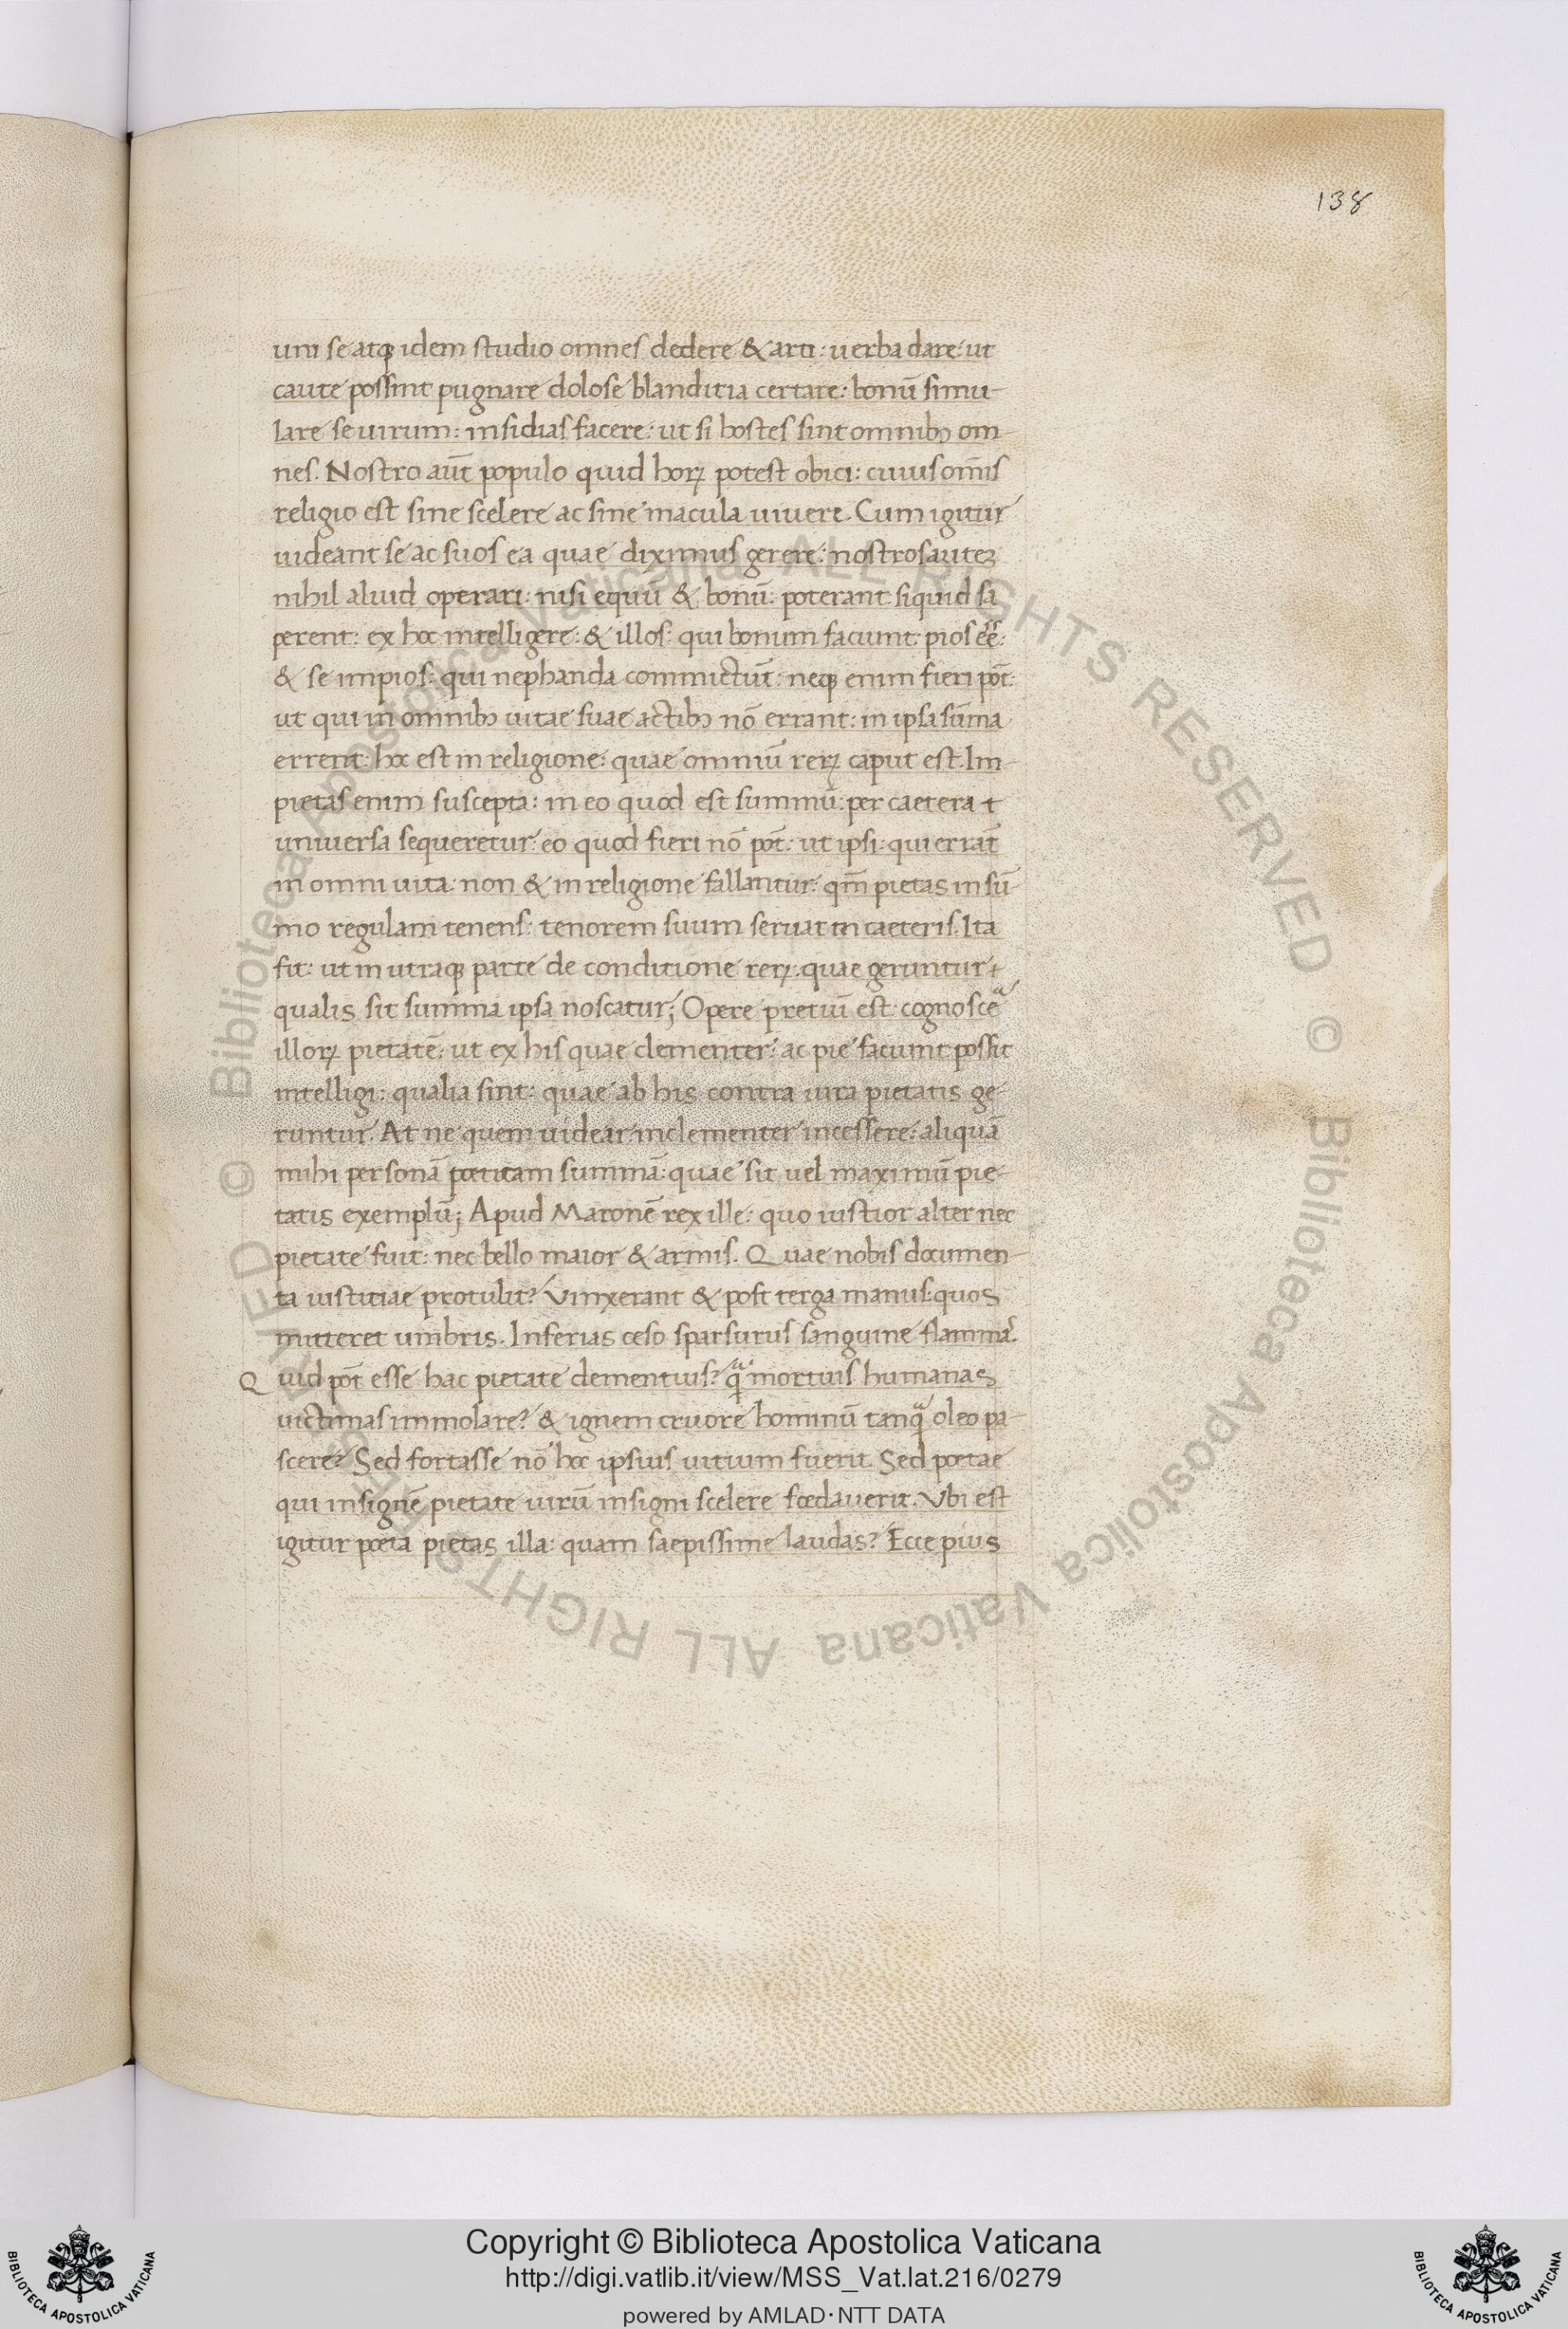 138
uni se atq; idem studio omnes dedere & arti: uerba dare: ut
caute possint pugnare dolose blanditia certare: bonū simu-
lare se uirum: insidias facere: ut si hostes sint omnibꝰ om-
nes. Nostro aūt populo quid horꝝ potest obici: cuius om̄is
religio est sine scelere ac sine macula uiuere. Cum igitur
uideant se ac suos ea quae diximus gerere: nostros autēꝫ
nihil aliud operari: nisi equū & bonū: poterant siquid sa
perent: ex hoc intelligere: & illos: qui bonum faciunt pios eē:
& se impios: qui nephanda commictūt: neq; enim fieri pōt:
ut qui in omnibꝰ uitae suae actibꝰ nō errant: in ipsa sūma
errent: hoc est in religione: quae omniū rerꝝ caput est. Im-
pietas enim suscepta: in eo quod est summū: per caetera t
uniuersa sequeretur: eo quod fieri nō pōt: ut ipsi: qui errāt
in omni uita: non & in religione fallantur: qm̄ pietas in sū-
mo regulam tenens: tenorem suum seruat in caeteris. Ita
fit: ut in utraq; parte de conditione rerꝝ: quae geruntur t
qualis sit summa ipsa noscatur; Opere pretiū est cognosce
illorꝝ pietatē: ut ex his quae clementer: ac pie faciunt possit
intelligi: qualia sint: quae ab his contra iura pietatis ge-
runtur. At ne quem uidear inclementer incessere: aliquā
mihi personā poeticam summā: quae sit uel maximū pie-
tatis exemplū; Apud Maronē rex ille: quo iustior alter nec
pietate fuit: nec bello maior & armis. Quae nobis documen-
ta iustitiae protulit? Vinxerant & post terga manus: quos
mitteret umbris. Inferias ceso sparsurus sanguine flammaˢ.
Quid pōt esse hac pietate clementius? qᵃ mortuis humanas
uictimas immolare? & ignem cruore hominū tanqᵃ oleo pa-
scere? Sed fortasse nō hoc ipsius uitium fuerit. Sed poetae
qui insignē pietate uirū insigni scelere foedauerit. Vbi est
igitur poeta pietas illa: quam saepissime laudas? Ecce pius
© Biblioteca Apostolica Vaticana ALL RIGHTS RESERVED © Biblioteca Apostolica Vaticana ALL RIGHTS RESERVED
BIBLIOTECA APOSTOLICA VATICANA
Copyright © Biblioteca Apostolica Vaticana
http://digi.vatlib.it/view/MSS_Vat.lat.216/0279
powered by AMLAD·NTT DATA
BIBLIOTECA APOSTOLICA VATICANA